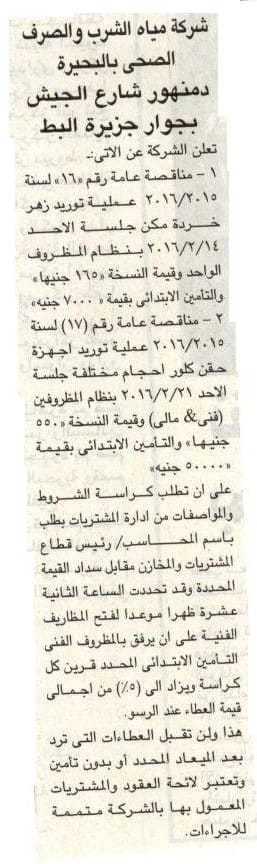 شركة مياه الشرب والصرف
الصحى بالبحيرة
دمنهور شارع الجيش
بجوار جزيرة البط
تعلن الشركة عن الاتى:ـ
١ - مناقصة عامة رقم «١٦» لسنة
٢٠١٦/٢٠١٥ عملية توريد زهر
خردة مكن جلسة الاحد
٢٠١٦/٢/١٤ بنظام المظروف
الواحد وقيمة النسخة «١٦٥ جنيها»
والتامين الابتدائى بقيمة «٧٠٠٠ جنيه»
٢ - مناقصة عامة رقم (١٧) لسنة
٢٠١٦/٢٠١٥ عملية توريد اجهزة
حقن كلور احجام مختلفة جلسة
الاحد ٢٠١٦/٢/٢١ بنظام المظروفين
(فنى& مالى) وقيمة النسخة «٥٥٠
جنيها» والتامين الابتدائى بقيمة
«٥٠٠٠٠ جنيه»
على ان تطلب كراسة الشروط
والمواصفات من ادارة المشتريات بطلب
باسم المحاسب/ رئيس قطاع
المشتريات والمخازن مقابل سداد القيمة
المحددة وقد تحددت الساعة الثانية
عشرة ظهرا موعدا لفتح المظاريف
الفنية على ان يرفق بالمظروف الفنى
التامين الابتدائى المحدد قرين كل
كراسة ويزاد الى (٥٪) من اجمالى
قيمة العطاء عند الرسو.
هذا ولن تقبل العطاءات التى ترد
بعد الميعاد المحدد أو بدون تامين
وتعتبر لائحة العقود والمشتريات
المعمول بها بالشركة متممة
للاجراءات.